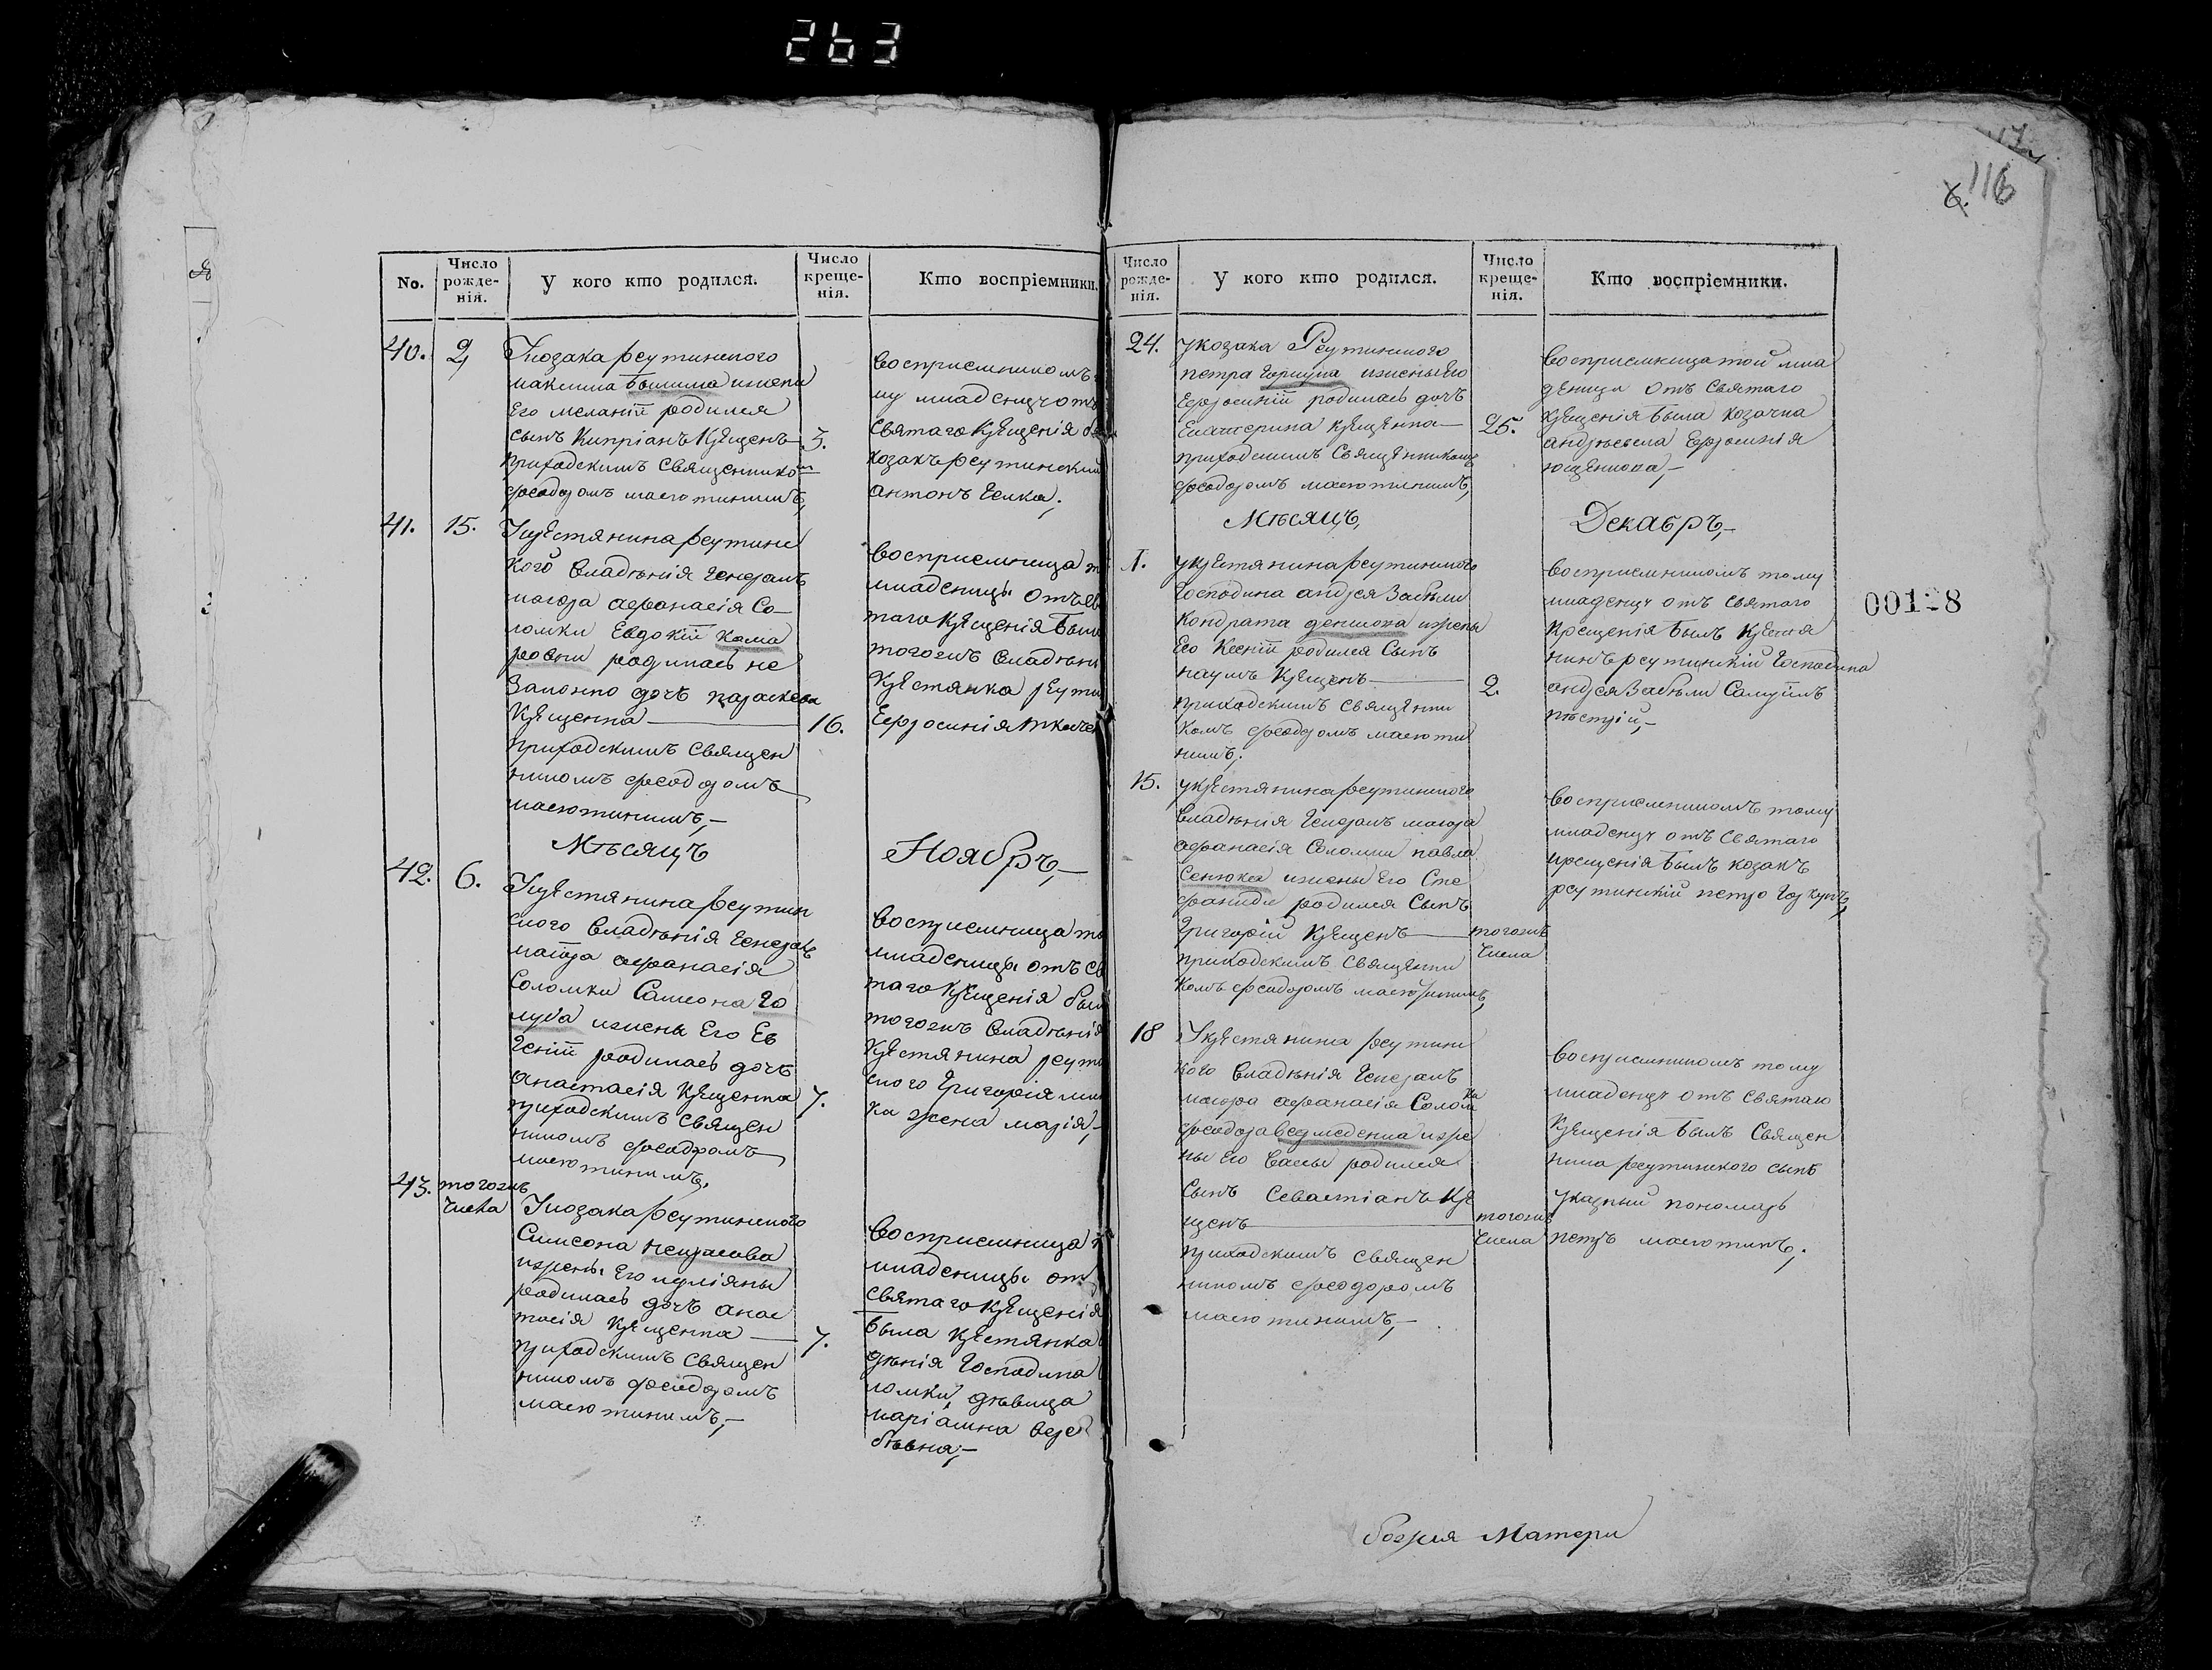 263
116
6.
No.
Число рожде-нія.
У кого кто родился.
Число креще-нія.
Кто воспріемники.
40. 2,
У козака реутинского
максима
его меланіи родился
сынъ Кипріанъ Крещенъ 3.
приходскимъ Священником
феодоромъ масютинимъ,
воспріемникомъ
му младенцу отъ
Святаго Крещенія
козакъ реутинский
антонъ
41. 15.
У крестянина реутинс
кого владенія генералъ
маіора афанасія Со
ломки Евдокіи Кома
ровни родилась не
законно дочъ параскева
Крещенна 16.
приходскимъ священ
никомъ феодоромъ
масютинимъ,
воспріемница
младеницы отъ
таго Крещенія была
тогожъ владени
Крестянка реути
Ефросинія
Мѣсяцъ Ноябръ,
42. 6.
У крестянина реутин
ского владѣнія генералъ
маіора афанасія
Соломки Самсона Го
луба изжены Его Ев
геніи родилась дочъ
анастасія Крещенна 7.
приходскимъ Священ
никомъ феодоромъ
масютинимъ,
воспріемница
младеницы отъ св
таго Крещенія был
тогожъ владѣнія
Крестянина реути
ского григорія
ка жена марія,
43. тогожъ числа
У козака реутинского
Симеона некрасова
изжены Его иуліяны
родилась дочъ анас
тасія Крещенна 7.
приходскимъ Священ
никомъ феодоромъ
масютинимъ,
воспріемница
младеницы от
святаго Крещенія
была Крестянка
дѣнія Господина
ломки дѣвица
маріамна
бъевна,
Число рожде-нія.
У кого кто родился.
Число креще-нія.
Кто воспріемники.
24.
У козака Реутинского
петра изжены Его
Ефросиніи родилась дочъ
Екатерина крещенна 25.
приходскимъ Священникомъ
феодоромъ масютинимъ,
воспріемница той мла
деници отъ Святаго
Крещенія была козачка
андреевна Ефросинія
ющенкова,
Мѣсяцъ, Декабръ,
1.
у крестянина реутинского
Господина андрея Забѣли
Кондрата изжены
Его Ксеніи родился Сынъ
наумъ Крещенъ 2.
приходскимъ священни
комъ феодоромъ масюти
нимъ,
воспріемникомъ тому
младенцу отъ святаго
крещенія былъ Крестя
нинъ реутинскій Господина
андрея Забѣли Самуилъ
пѣстрій,
15.
у крестянина реутинского
владѣнія Генералъ маіора
афанасія Соломки павла
Сенюка изжены Его Сте
фаниды родился Сынъ
Григорій Крещенъ тогожъ числа
приходскимъ Священни
комъ феодоромъ масютинимъ,
воспріемникомъ тому
младенцу отъ Святаго
крещенія былъ козакъ
реутинскій петро
18
У крестянина реутинс
кого владѣнія Генералъ
маіора афанасія Соломки
феодора ведмеденка изже
ны его родился
Сынъ Севастіанъ Кре
щенъ тогожъ числа
приходскимъ священ
никомъ феодоромъ
масютинимъ,
воспріемникомъ тому
младенцу отъ святаго
Крещенія былъ Священ
ника реутинского сынъ
указный пономарь
петръ масютинъ,
божія Матери